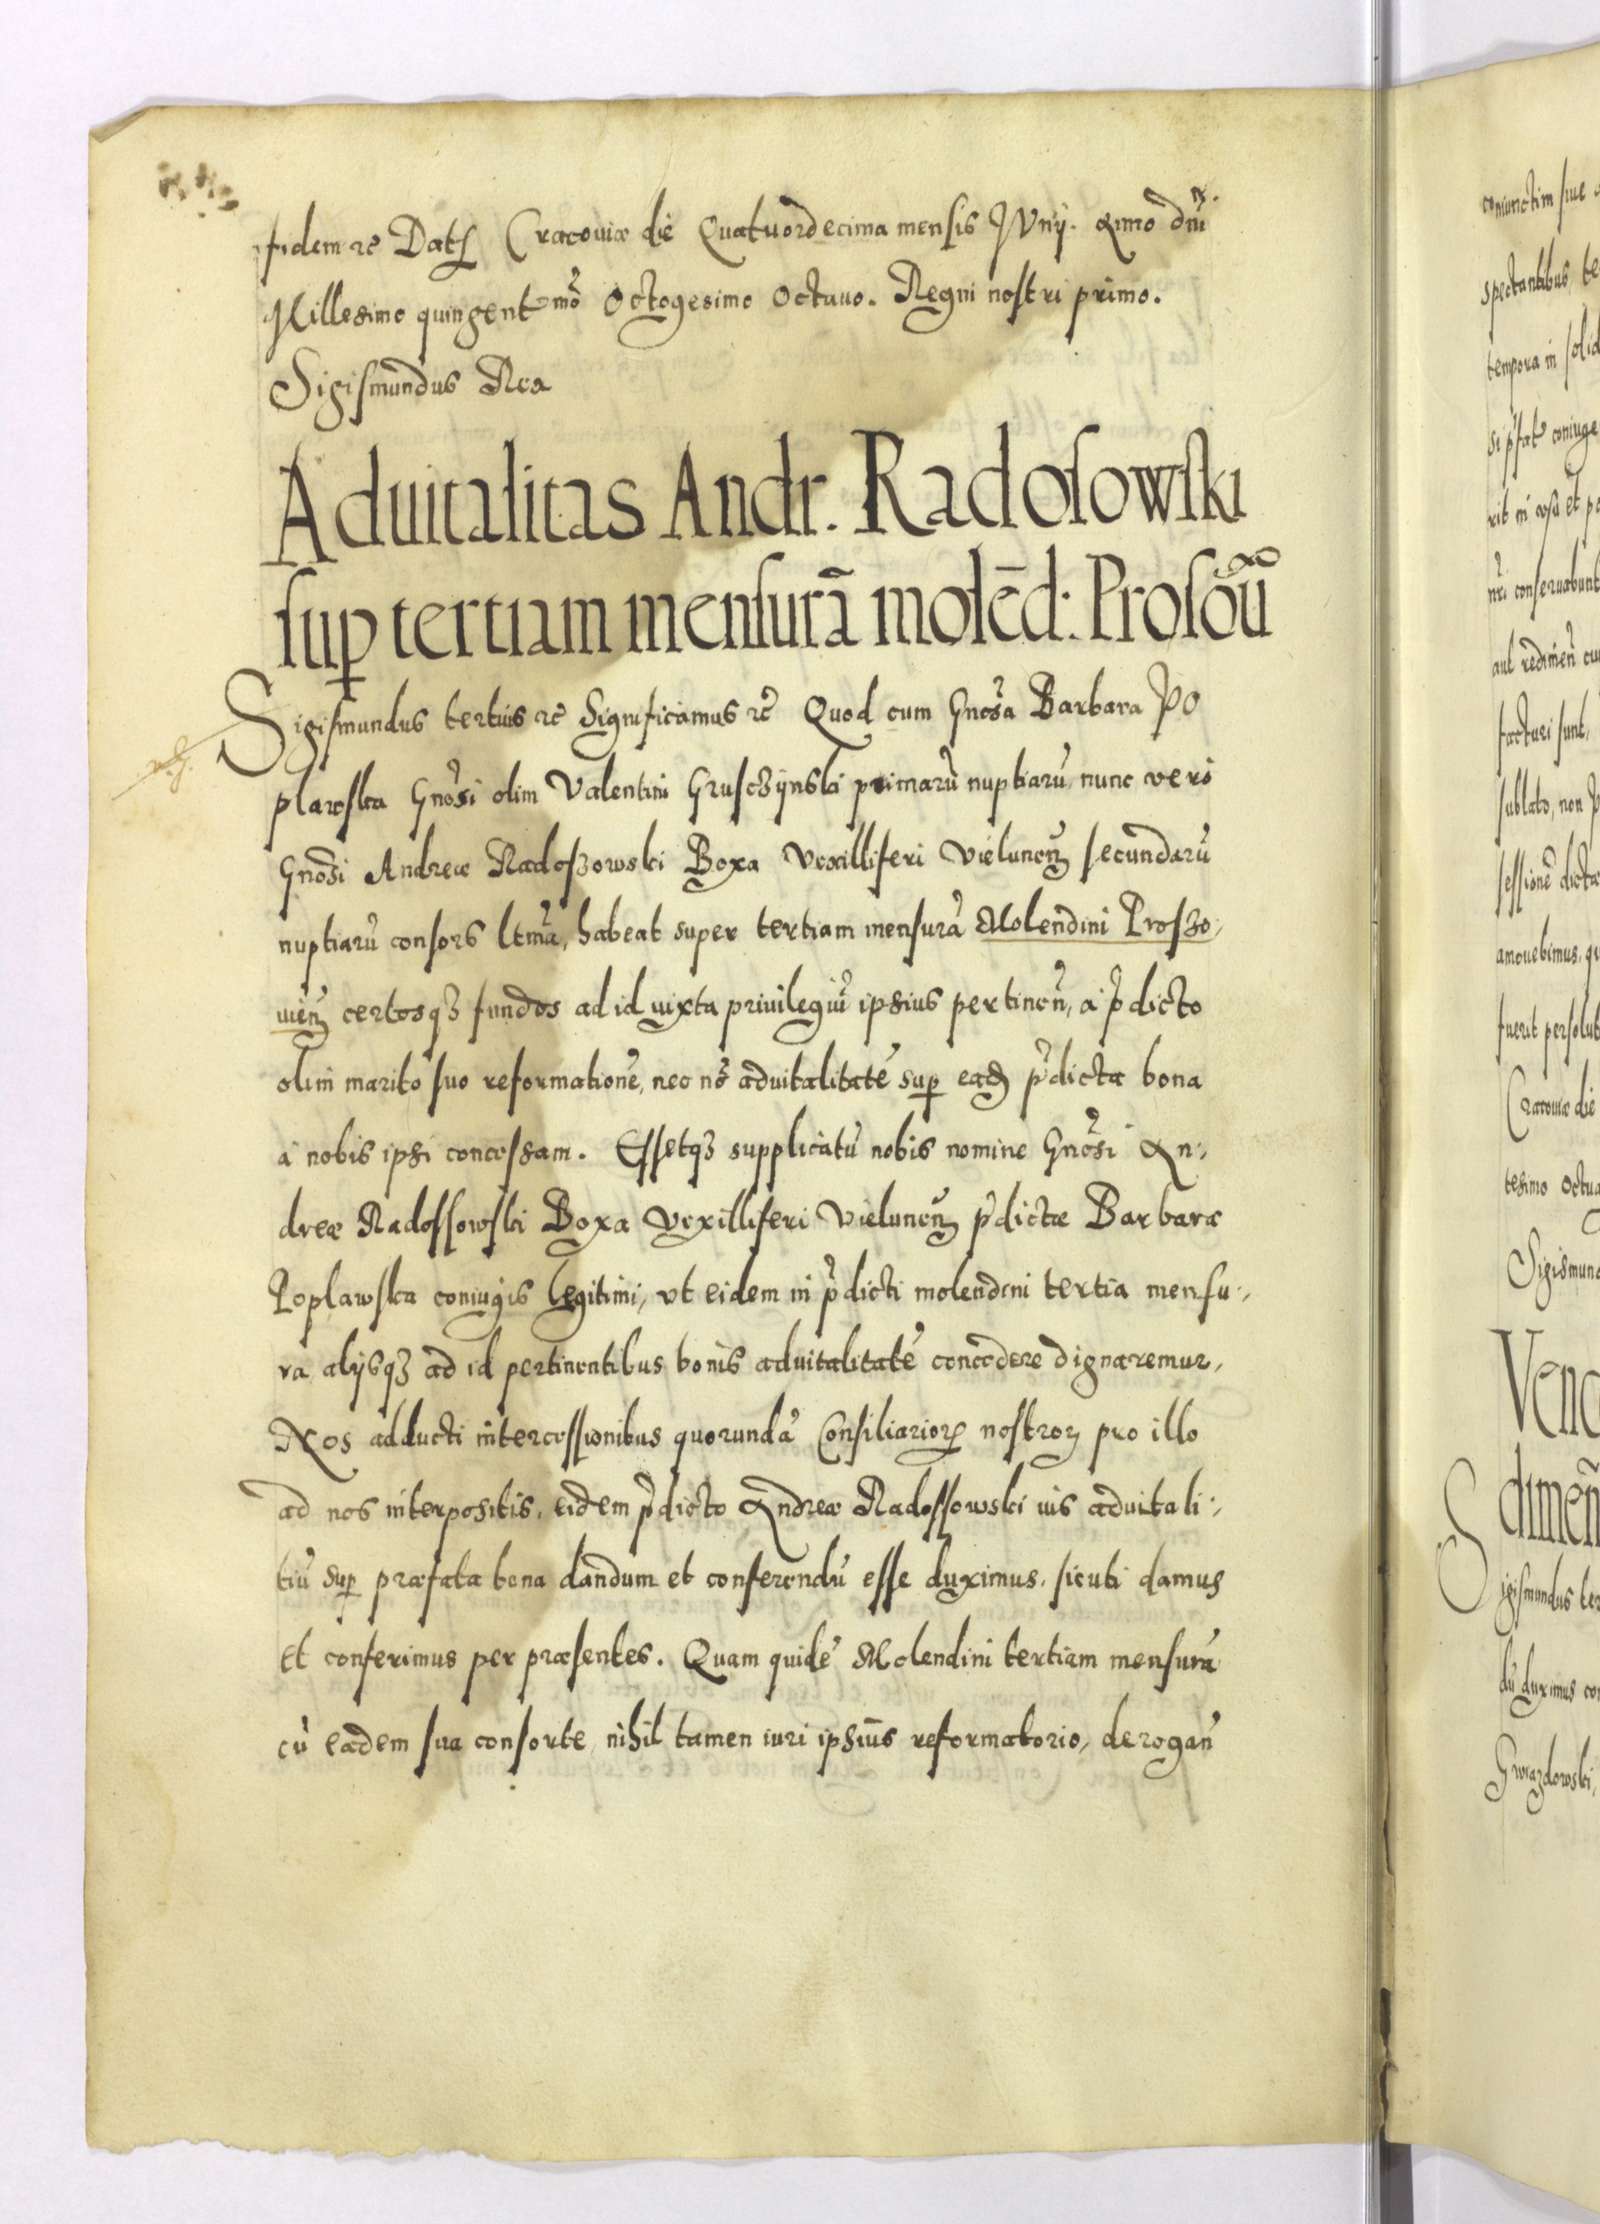 fidem ꝛc Datꝭ Cracoviæ die Quatuordecima mensis Juny. Anno dñi
Millesimo quingentmõ Octogesimo Octauo. Regni nostri primo.
Sigismundus Rex
Aduitalitas Andr. Radosowski
suꝑ tertiam mensurã molẽd: Prosoũ
Sigismundus tertius ꝛc Significamus ꝛc Quod cum Gñosa Barbara Po
plawska Gñosi olim Valentini Gruschÿnski primarũ nuptiarũ, nunc vero
Gñosi Andreæ Radoszowski Boxa Vexilliferi Vieluneñ secundarũ
nuptiarũ consors ltmã, habeat super tertiam mensurã Molendini Proszo,
uień certosqꝫ fundos ad id iuxta priuilegiũ ipsius pertineñ, a p̃dicto
olim marito suo reformationẽ, nec nõ aduitalitatẽ suꝑ eadꝫ p̃dicta bona
a nobis ipsi concessam. Essetqꝫ supplicatũ nobis nomine Gñosi An,
dreæ Radossowski Boxa Vexilliferi Vieluneñ p̃dictæ Barbaræ
Poplawska coniugis legitimi, vt eidem in p̃dicti molendini tertia mensu,
ra alÿsqꝫ ad id pertinentibus bonis aduitalitatẽ concedere dignaremur,
Nos adducti intercessionibus quorundã Consiliarioꝝ nostroꝝ pro illo
ad nos interpositis, eidem p̃dicto Andreæ Radossowski ius aduitali,
tiũ suꝑ præfata bona dandum et conferendũ esse duximus, sicuti damus
et conferimus per præsentes. Quam quidẽ Molendini tertiam mensurã
cũ eadem sua consorte, nihil tamen iuri ipsius reformatorio, derogañ
coniunctim siue
spectantibus, te
tempora in solid
si p̃fatẽ coniuge
nr̃i conseruabunt
aut redimeñ cu
facturi sunt,
sublato, non p
sessionẽ dictæ
amouebimus, qu
fuerit persolut
Cracouiæ die
tesimo Octua
Sigismund
Vene
dimeñ
Sigismundus ter
dũ duximus co
Gwiazdowski,